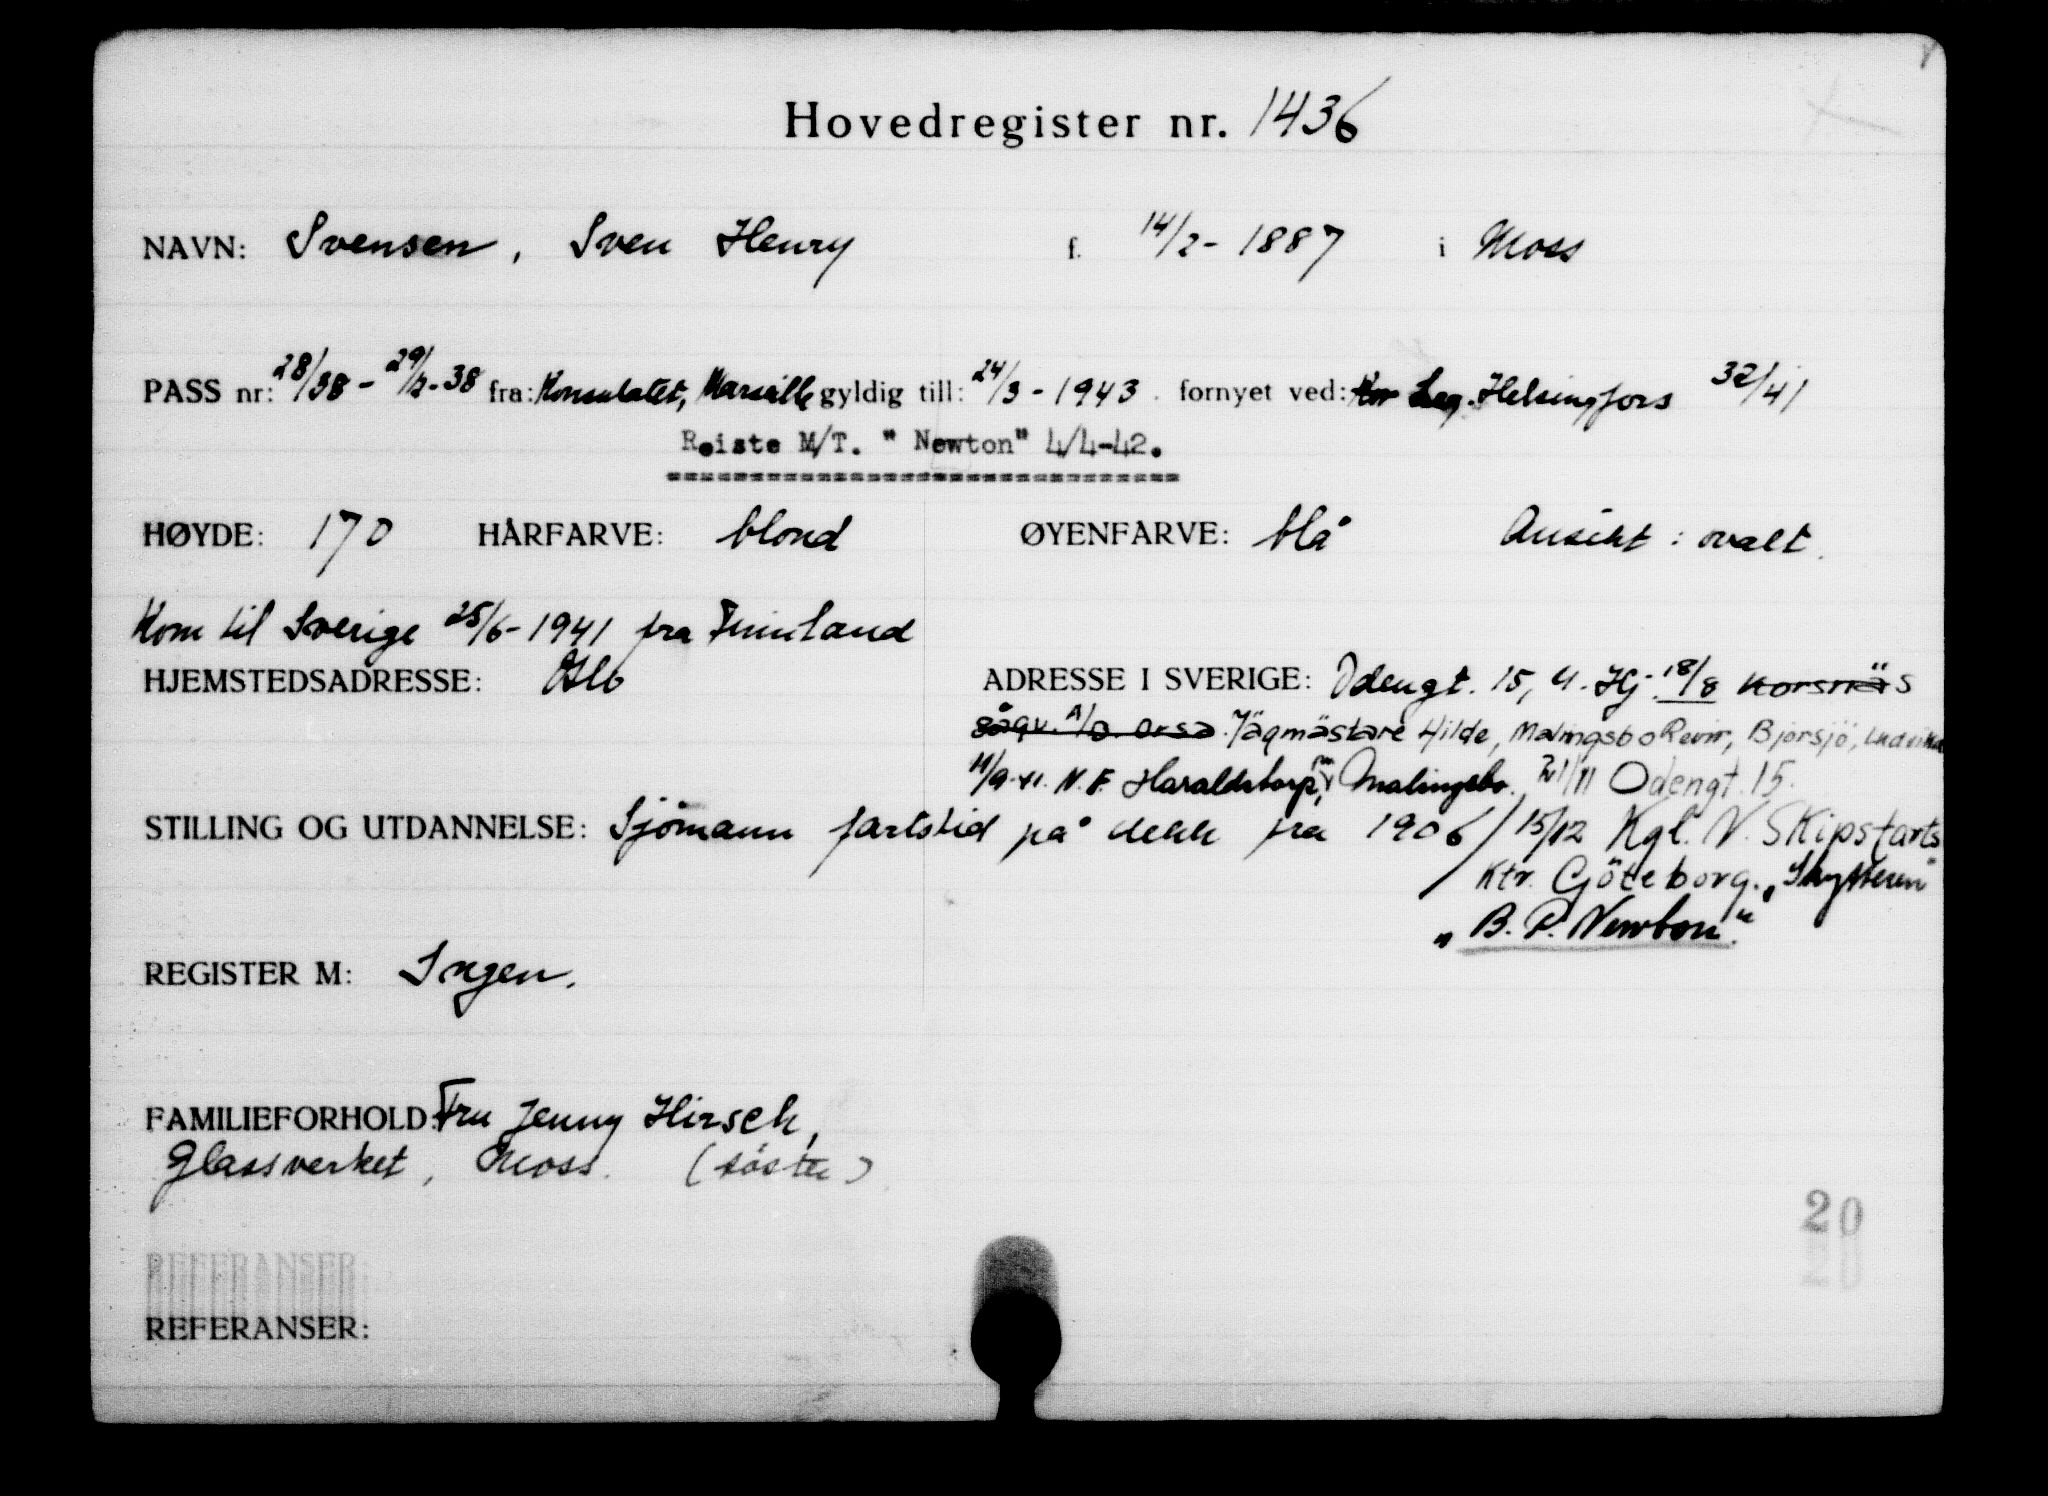 Hovedregister nr. 1436
NAVN: Svensen, Sven Henry f. 14/2-1887 i Moss
PASS nr: 28/38 - 29/3-38 fra: Konsulatet, Marseille gyldig till: 24/3-1943 fornyet ved: Leg. Helsingfors 32/41
Reiste M/T. " Newton" 4/4-42.
HØYDE: 170 HÅRFARVE: blond ØYENFARVE: blå Ansikt: ovalt.
Kom til Sverige 25/6-1941 fra Finnland
HJEMSTEDSADRESSE: Oslo ADRESSE I SVERIGE: Odengt. 15, 4. Hj. 18/8 Korsnäs
Sågv. A/B. Orsa. Jägmästare Hilde, Malingsbo Revir, Bjørsjö, Ludvika
11/9-41. N.F. Haraldstorp, Malingsbo. 1/11 Odengt. 15.
STILLING OG UTDANNELSE: Sjömann fartstid på dekk fra 1906 / 15/12 Kgl. N. Skipsfarts
Ktr. Göteborg. „Skytteren"
„B. P. Newton."
REGISTER M: Ingen.
FAMILIEFORHOLD: Fru Jenny Hirsch,
Glassverket, Moss. (söster)
20
20
REFERANSER:
REFERANSER: